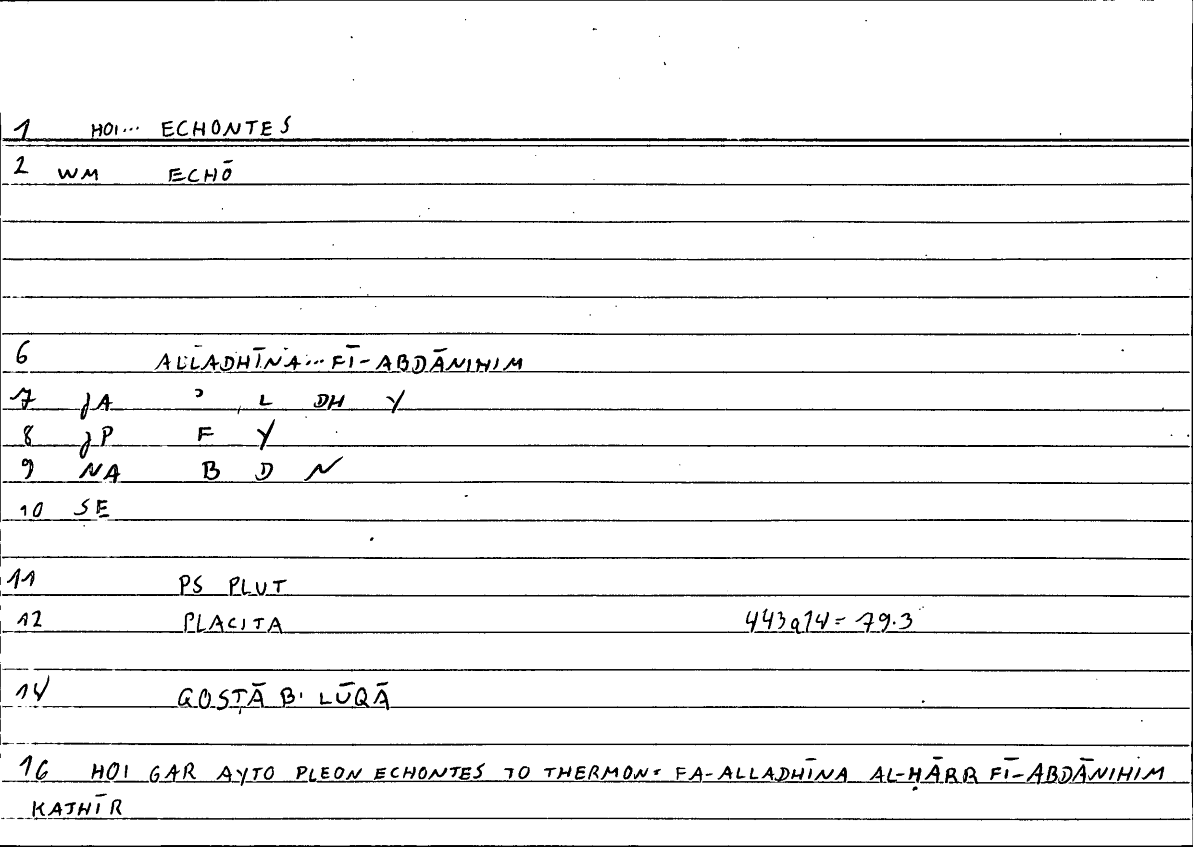 1 HOI... ECHONTES
2 WM ECHŌ
6 ALLADHĪNA... FĪ-ABDĀNIHIM
7 JA ʾ L DH Y
8 JP F Y
9 NA B D N
10 SE
11 PS PLUT
12 PLACITA 443a14 = 79.3
14 QOSṬĀ B. LŪQĀ
16 HOI GAR AYTO PLEON ECHONTES TO THERMON: FA-ALLADHĪNA AL-ḤĀRR FĪ-ABDĀNIHIM
KATHĪR